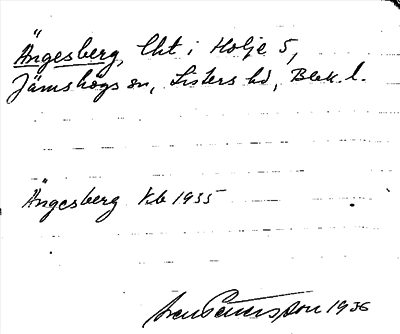 Ängesberg, lht i Holje 5,
Jämshögs sn, Listers hd, Blek. l.
Ängesberg Kb 1935
Sven Petersson 1936